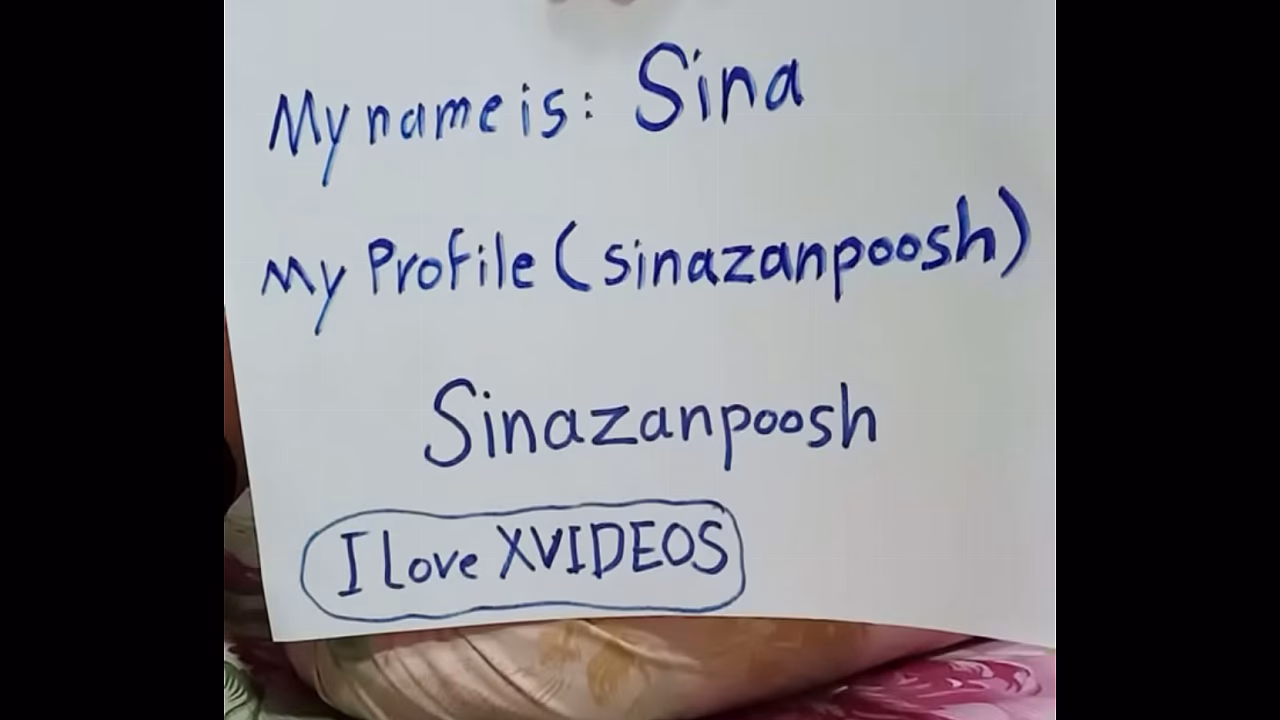 My name is: Sina
My Profile (sinazanpoosh)
Sinazanpoosh
I love XVIDEOS